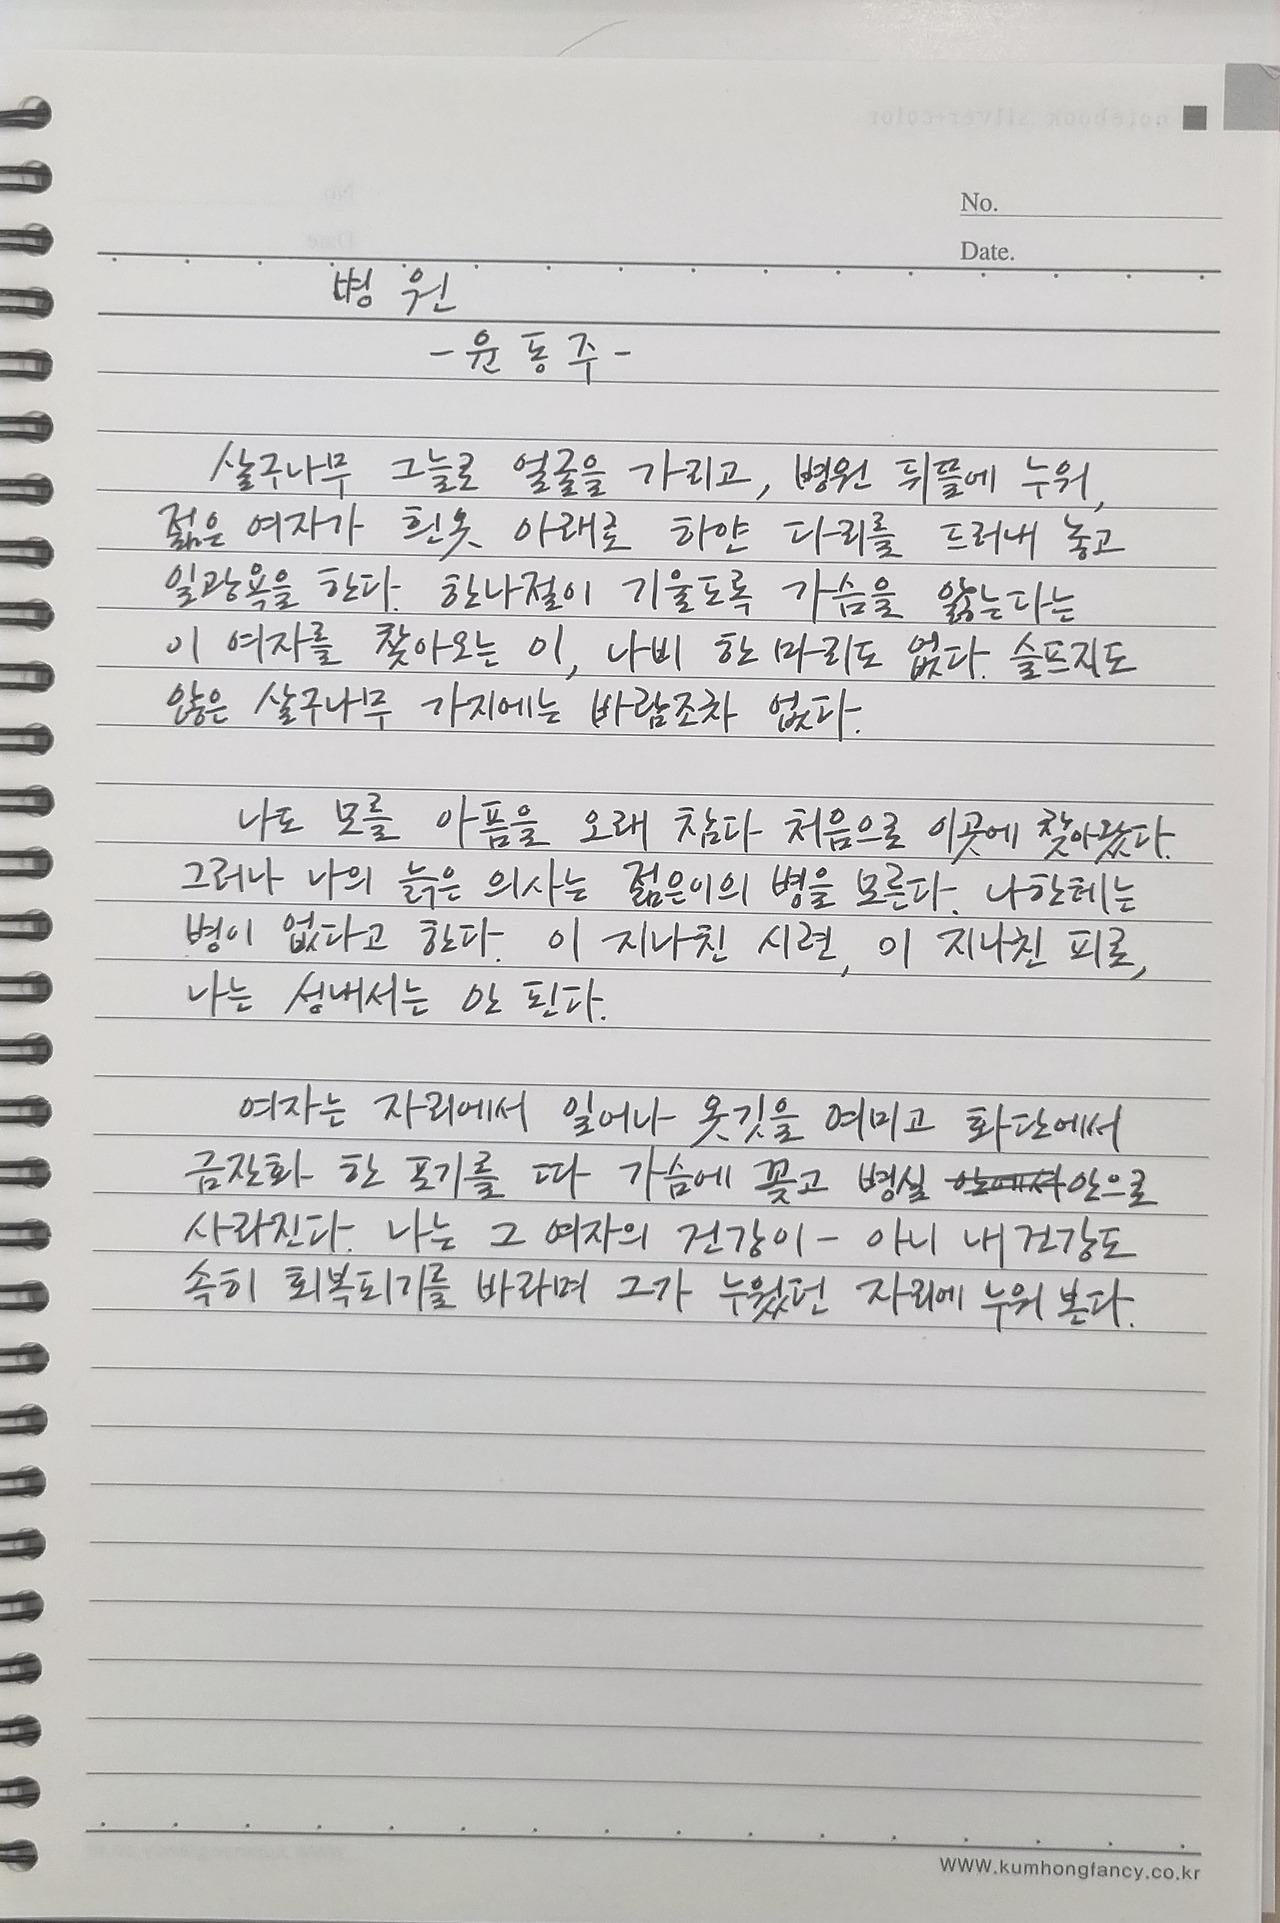 notebook silver+color
No.
Date.
병 원
- 윤 동 주 -
살구나무 그늘로 얼굴을 가리고, 병원 뒤뜰에 누워,
젊은 여자가 흰옷 아래로 하얀 다리를 드러내 놓고
일광욕을 한다. 한나절이 기울도록 가슴을 앓는다는
이 여자를 찾아오는 이, 나비 한 마리도 없다. 슬프지도
않은 살구나무 가지에는 바람조차 없다.
나도 모를 아픔을 오래 참다 처음으로 이곳에 찾아왔다.
그러나 나의 늙은 의사는 젊은이의 병을 모른다. 나한테는
병이 없다고 한다. 이 지나친 시련, 이 지나친 피로,
나는 성내서는 안 된다.
여자는 자리에서 일어나 옷깃을 여미고 화단에서
금잔화 한 포기를 따 가슴에 꽂고 병실 안으로
사라진다. 나는 그 여자의 건강이 - 아니 내 건강도
속히 회복되기를 바라며 그가 누웠던 자리에 누워 본다.
www.kumhongfancy.co.kr